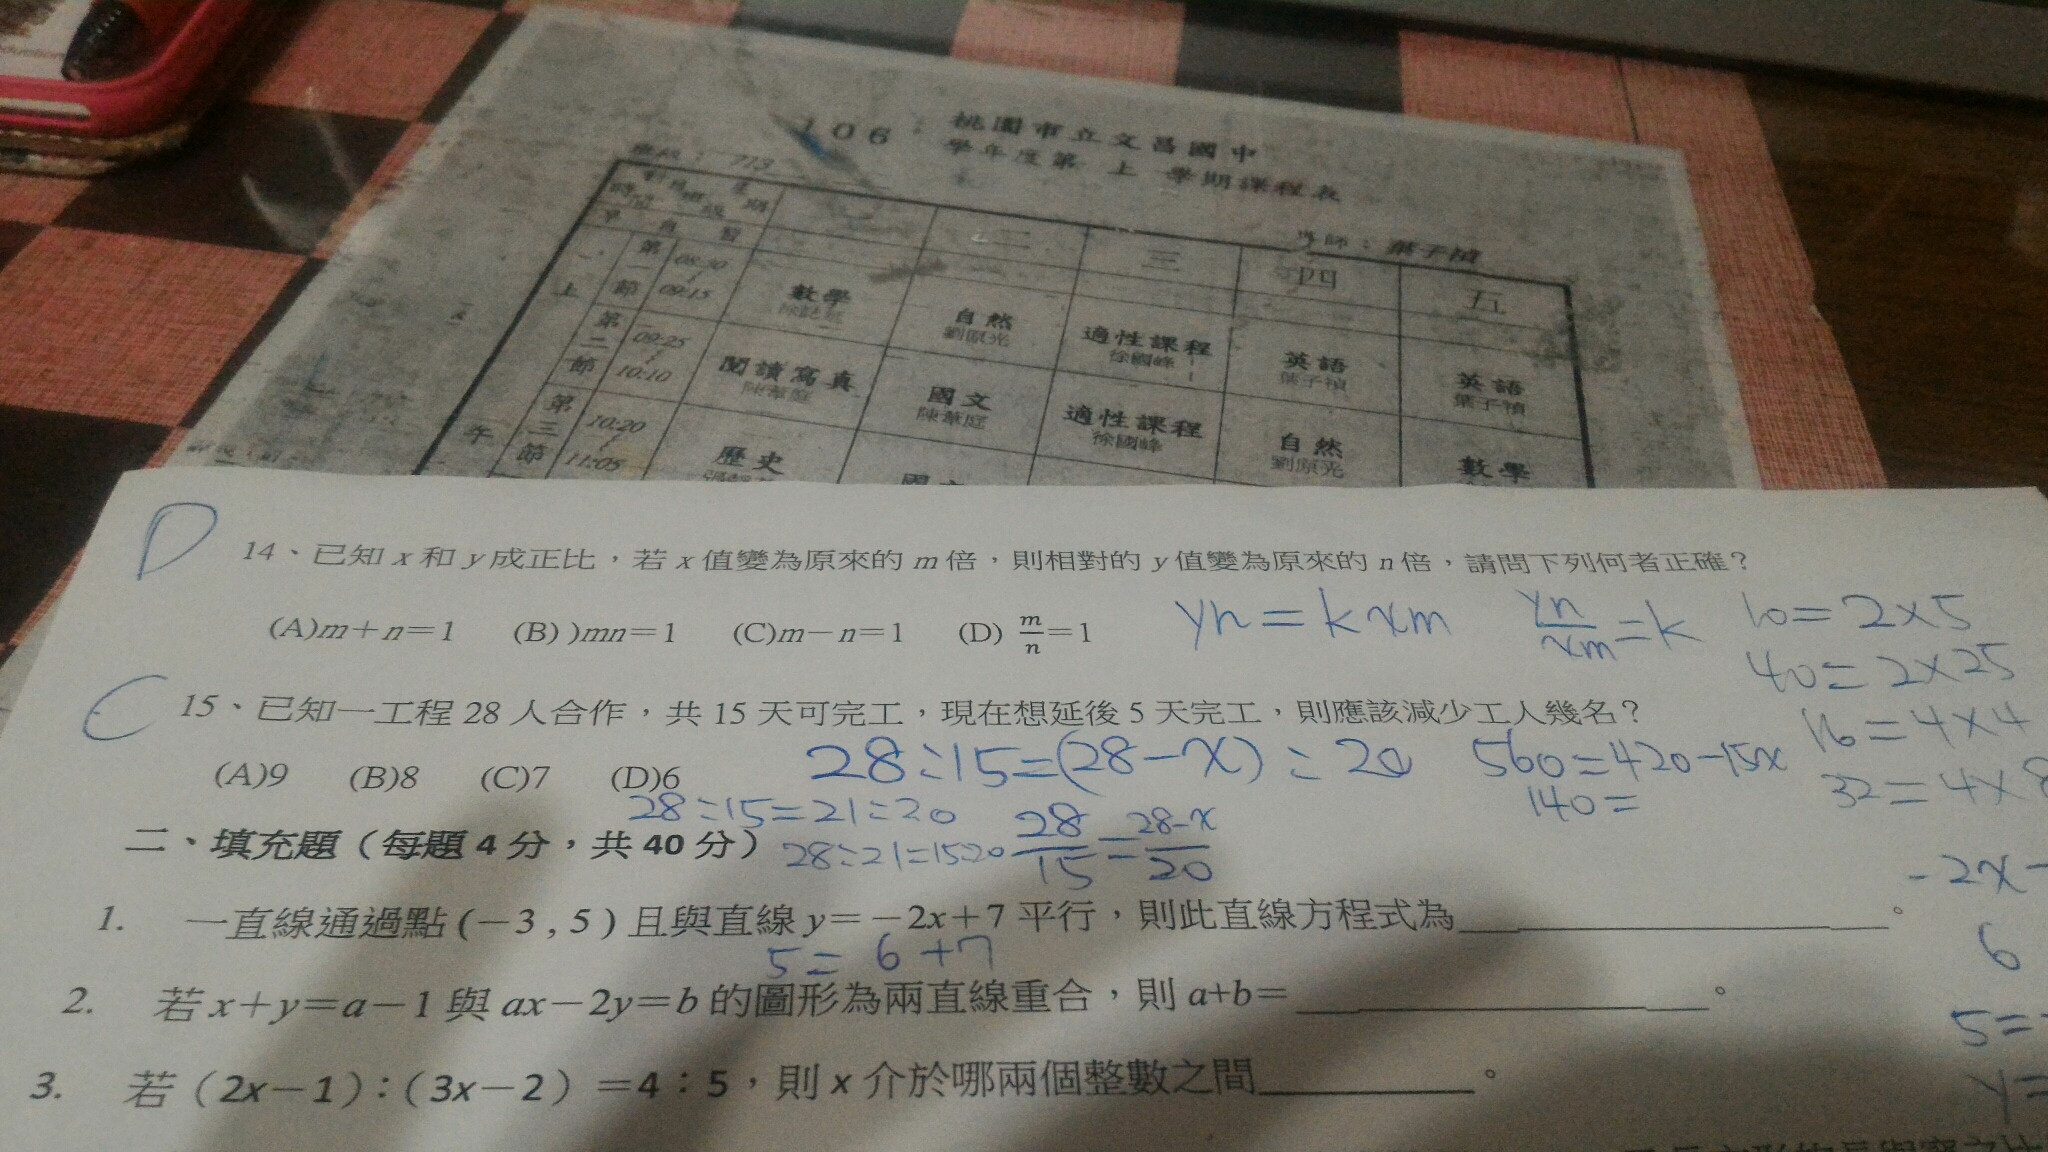 106 桃園市立文昌國中
學年度第 上 學期課程表
班級：713
導師：葉子禎
科目 星期
時間 班級
早自習
二 三 四 五
上午
第一節 08:30 ~ 09:15 數學 自然 劉原光 適性課程 徐國峰 英語 葉子禎 英語 葉子禎
第二節 09:25 ~ 10:10 閱讀寫真 陳葦庭 國文 陳葦庭 適性課程 徐國峰 自然 劉原光 數學
第三節 10:20 ~ 11:05 歷史
D
14、已知 x 和 y 成正比，若 x 值變為原來的 m 倍，則相對的 y 值變為原來的 n 倍，請問下列何者正確？
(A)m＋n＝1 (B) )mn＝1 (C)m－n＝1 (D) m/n＝1
yn = kxm yn/xm = k 10 = 2×5
40 = 2×25
C
15、已知一工程 28 人合作，共 15 天可完工，現在想延後 5 天完工，則應該減少工人幾名？
16 = 4×4
(A)9 (B)8 (C)7 (D)6
28:15=(28-x):20 560=420-15x
32 = 4×8
28:15=21:20 28/15 = 28-x/20 140=
二、填充題（每題 4 分，共 40 分）
28:21=15:20
-2x-
1. 一直線通過點 (－3 , 5 ) 且與直線 y＝－2x＋7 平行，則此直線方程式為＿＿＿＿＿＿。
5 = 6+7
6
2. 若 x＋y＝a－1 與 ax－2y＝b 的圖形為兩直線重合，則 a+b＝＿＿＿＿＿＿。
5=-
3. 若（2x－1）：（3x－2）＝4：5，則 x 介於哪兩個整數之間＿＿＿＿。
y=